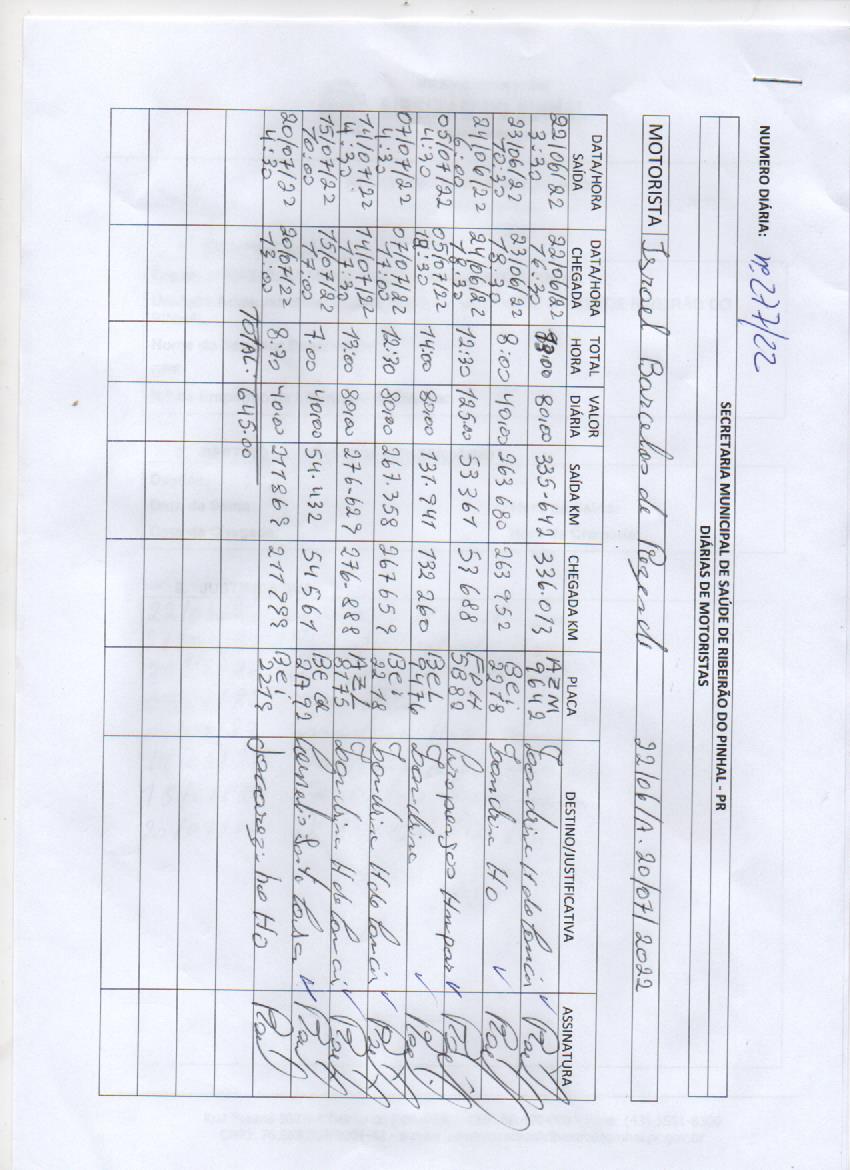 NUMERO DIÁRIA: nº 277/22
SECRETARIA MUNICIPAL DE SAÚDE DE RIBEIRÃO DO PINHAL - PR
DIÁRIAS DE MOTORISTAS
MOTORISTA Israel Barcelos de Rezende 22/06/A.20/07/2022
DATA/HORA SAÍDA DATA/HORA CHEGADA TOTAL HORA VALOR DIÁRIA SAÍDA KM CHEGADA KM PLACA DESTINO/JUSTIFICATIVA ASSINATURA
22/06/22 3:30 22/06/22 16:30 80,00 335-642 336.013 AZM 9642 Londrina H do Cancer
23/06/22 10:30 23/06/22 18:30 8:00 40,00 263 680 263 952 BCi 2218 Londrina Ho
24/06/22 6:00 24/06/22 18:30 12:30 125,00 53 361 53 688 5882 Arapongas Honpar
05/07/22 4:30 05/07/22 18:30 14:00 80,00 131.941 132 260 BCL 1476 Londrina
07/07/22 4:30 07/07/22 17:00 12:30 80,00 267.358 267659 BCi 2218 Londrina H do Cancer
14/07/22 4:30 14/07/22 17:30 13:00 80,00 276-627 276-888 AZL 8175 Londrina H do Cancer
15/07/22 10:00 15/07/22 17:00 7:00 40,00 54.432 54561 Cornelio
20/07/22 4:30 20/07/22 13:00 8:30 40,00 BCi Jacarezinho Ho
TOTAL. 645,00